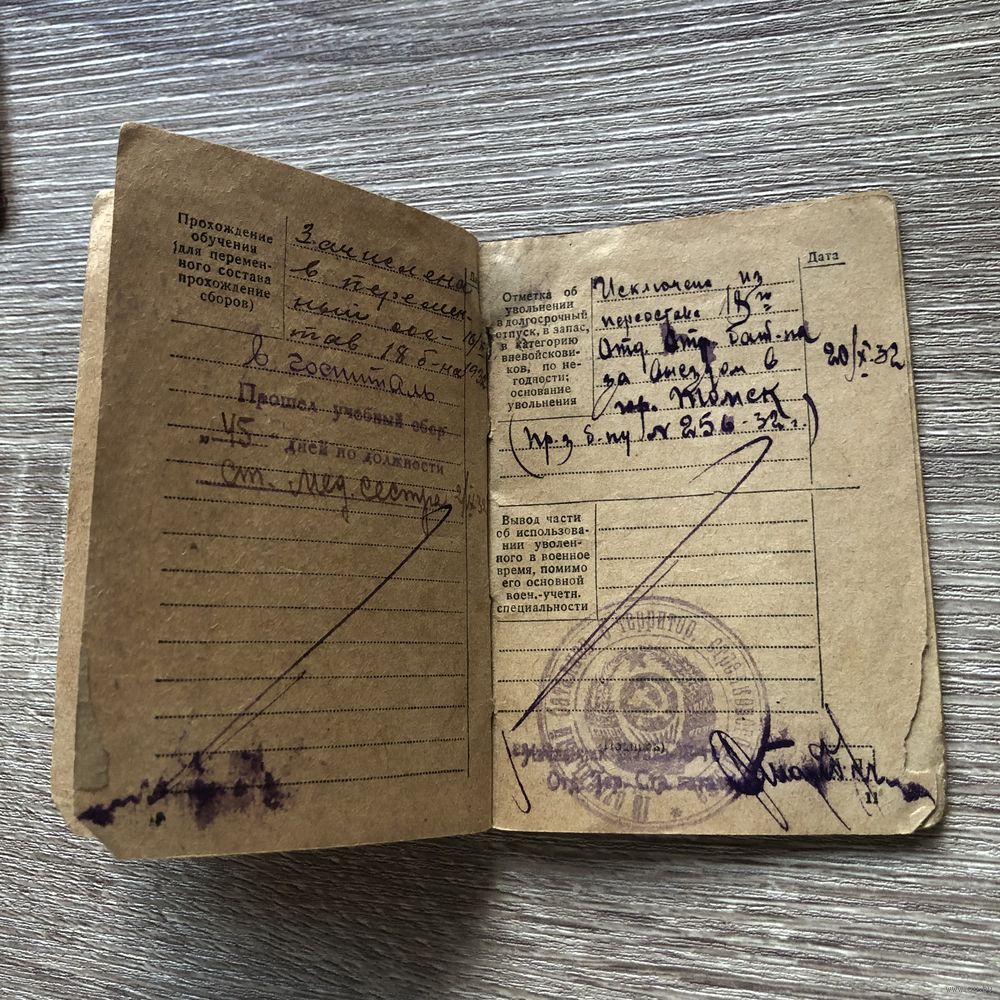 Прохождение
обучения
(для перемен-
ного состава
прохождение
сборов)
Зачислена
в перемен-
ный сос-
тав 18 б-на
в госпиталь
Прошел учебный сбор
„45“ дней по должности
ст. мед. сестра
Отметка об
увольнении
в долгосрочный
отпуск, в запас,
в категорию
вневойскови-
ков, по не-
годности;
основание
увольнения
Исключена из
перостава 18го
Отд. Стр. Бат-на
за выездом в
гор. Томск
(пр. з б-ну № 256-32 г.)
Дата
20/XI-32
Вывод части
об использова-
нии уволен-
ного в военное
время, помимо
его основной
воен.-учетн.
специальности
(подпись)
11